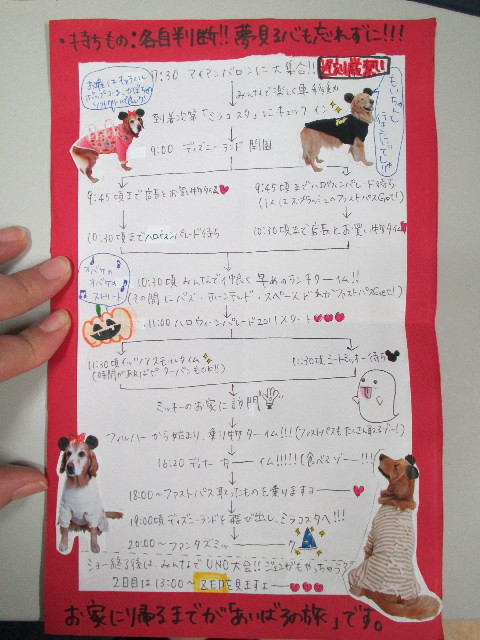 ・持ちもの:各自判断!! 夢見る心も忘れずに!!!
7:30 アイアンバロンに大集合!! 遅刻厳禁!!
みんなで楽しく車移動
到着次第「ミラコスタ」にチェックイン
9:00 ディズニーランド開園
9:45頃まで店長とお買い物タイム
9:45頃ハロウィンパレード待ち
(1人はスプラッシュのファストパスGet!)
10:30頃までハロウィンパレード待ち
10:30頃まで店長とお買い物タイム
オバケの
オバケの
ストリート
10:30頃 みんなで仲良く早めのランチタイム!!
(その間にバズ・ホーンテッド・スペースどれかファストパスGet!)
11:00 ハロウィーンパレード2011スタート
11:30頃 イッツアスモールタイム
(時間があればピーターパンもOK!!)
11:30頃 ミートミッキー待ち
ミッキーのお家に訪問
フィルハーから始まり、乗り物タイム!!!(ファストパスもたくさん取るゾー!)
16:20 ディナータイム!!!!!(食べるゾー!!!)
18:00〜ファストパス取ったものを乗りますョ
19:00頃ディズニーランドを飛び出し、ミラコスタへ!!!
20:00〜ファンタズミック
ショー終了後は、みんなでUNO大会!! ジェンガもやっちゃう?
2日目は13:00〜ZEDを見ますョ
お家に帰るまでが「あいばるの旅」です。